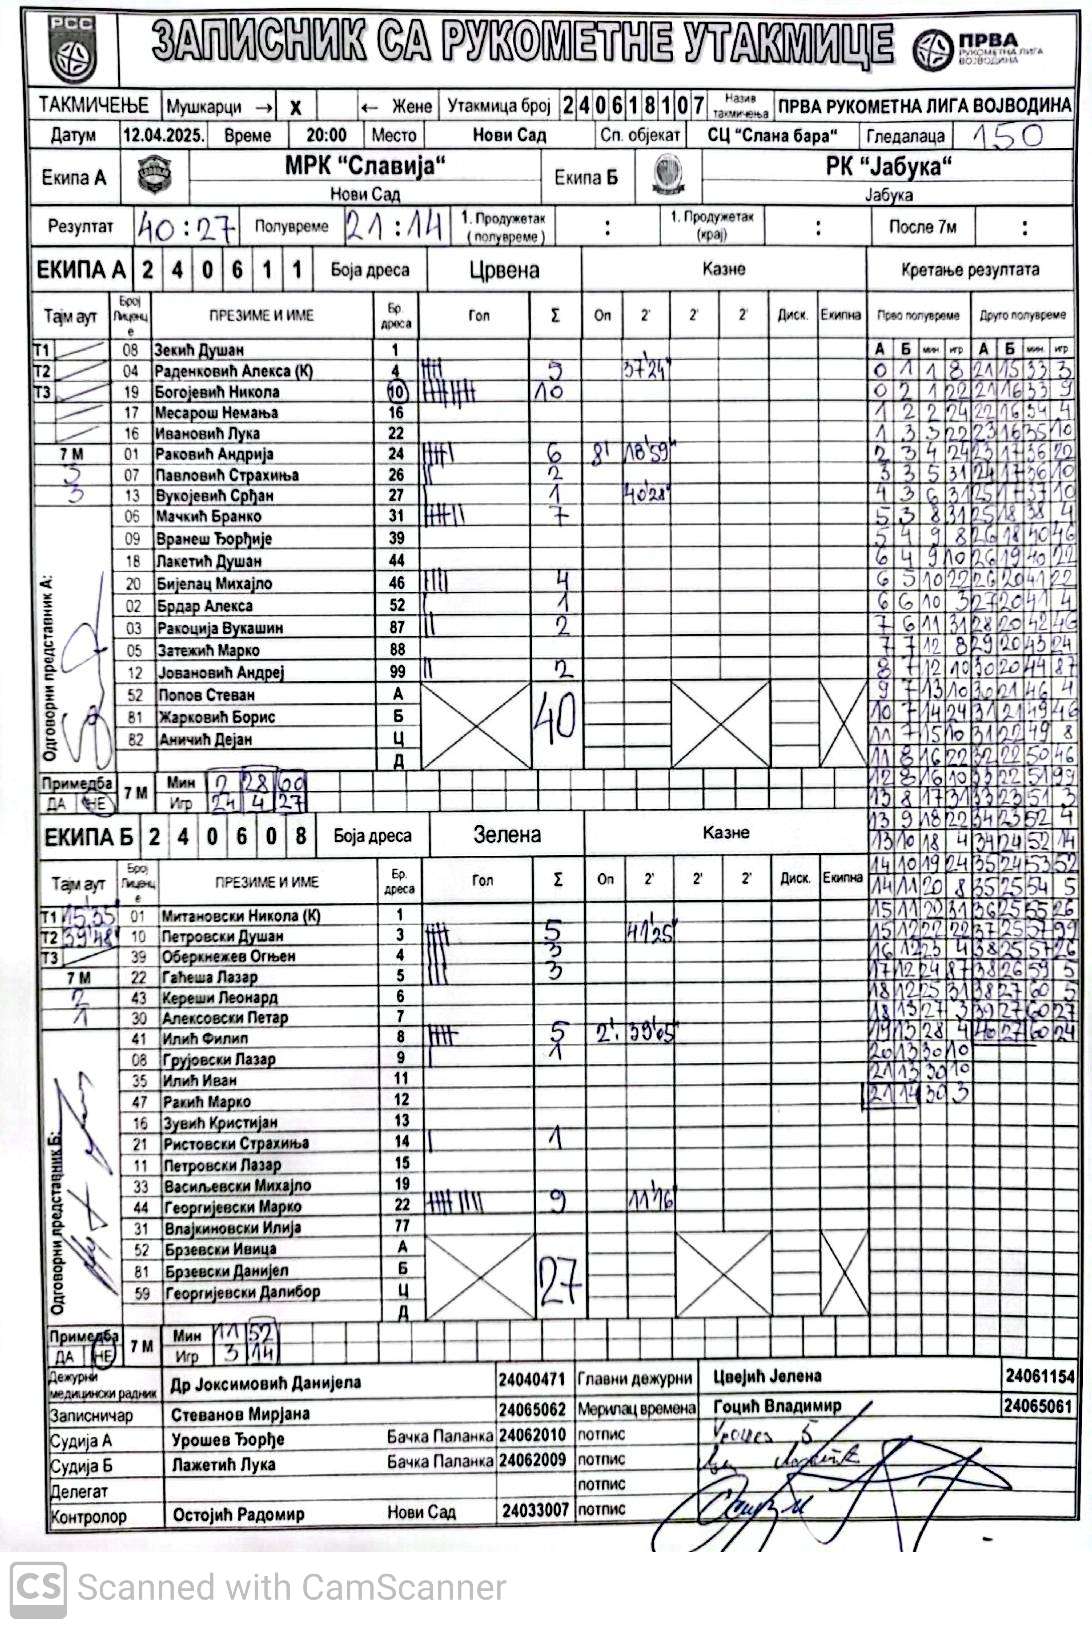 РСС
ЗАПИСНИК СА РУКОМЕТНЕ УТАКМИЦЕ
ПРВА
РУКОМЕТНА ЛИГА
ВОЈВОДИНА
ТАКМИЧЕЊЕ Мушкарци → X ← Жене Утакмица број 240618107 Назив такмичења ПРВА РУКОМЕТНА ЛИГА ВОЈВОДИНА
Датум 12.04.2025. Време 20:00 Место Нови Сад Сп. објекат СЦ “Слана бара“ Гледалаца 150
Екипа А МРК “Славија“ Екипа Б РК “Јабука“
Нови Сад Јабука
Резултат 40:27 Полувреме 21:14 1. Продужетак (полувреме) : 1. Продужетак (крај) : После 7м :
ЕКИПА А 2 4 0 6 1 1 Боја дреса Црвена Казне Кретање резултата
Тајм аут Број Лиценце ПРЕЗИМЕ И ИМЕ Бр. дреса Гол Σ Оп 2' 2' 2' Диск. Екипна Прво полувреме Друго полувреме
А Б мин игр А Б мин. игр
Т1 08 Зекић Душан 1
Т2 04 Раденковић Алекса (К) 4 5 37'24"
Т3 19 Богојевић Никола 10 10
17 Месарош Немања 16
16 Ивановић Лука 22
7 М 01 Раковић Андрија 24 6 8' 18'59"
3 07 Павловић Страхиња 26 2
3 13 Вукојевић Срђан 27 1 40'28"
06 Мачкић Бранко 31 7
09 Вранеш Ђорђије 39
18 Лакетић Душан 44
20 Бијелац Михајло 46 4
02 Брдар Алекса 52 1
03 Ракоција Вукашин 87 2
05 Затежић Марко 88
12 Јовановић Андреј 99 2
52 Попов Стеван А
81 Жарковић Борис Б 40
82 Аничић Дејан Ц
Д
Одговорни представник А:
Примедба ДА НЕ 7 М Мин 2 28 60
Игр 24 4 27
0 1 1 8 21 15 33 3
0 2 1 22 21 16 33 9
1 2 2 24 22 16 34 4
1 3 3 22 23 16 35 10
2 3 4 24 23 17 36 22
3 3 5 31 24 17 36 10
4 3 6 31 25 17 37 10
5 3 8 31 25 18 38 4
5 4 9 8 26 18 40 46
6 4 9 10 26 19 40 22
6 5 10 22 26 20 41 22
6 6 10 3 27 20 41 4
7 6 11 31 28 20 42 46
7 7 12 8 29 20 43 24
8 7 12 10 30 20 44 87
9 7 13 10 30 21 46 4
10 7 14 24 31 21 49 46
11 7 15 10 31 22 49 8
11 8 16 22 32 22 50 46
12 8 16 10 33 22 51 99
13 8 17 31 33 23 51 3
13 9 18 22 34 23 52 4
13 10 18 4 34 24 52 14
14 10 19 24 35 24 53 52
14 11 20 8 35 25 54 5
15 11 22 31 36 25 55 26
15 12 22 22 37 25 57 99
16 12 23 4 38 25 57 26
17 12 24 87 38 26 59 5
18 12 25 31 38 27 60 5
18 13 27 3 39 27 60 27
19 13 28 4 40 27 60 24
20 13 30 10
21 13 30 10
21 14 30 3
ЕКИПА Б 2 4 0 6 0 8 Боја дреса Зелена Казне
Тајм аут Број Лиценце ПРЕЗИМЕ И ИМЕ Бр. дреса Гол Σ Оп 2' 2' 2' Диск. Екипна
Т1 15'35 01 Митановски Никола (К) 1
Т2 39'48" 10 Петровски Душан 3 5 41'25"
Т3 39 Оберкнежев Огњен 4 3
7 М 22 Гаћеша Лазар 5 3
2 43 Кереши Леонард 6
1 30 Алексовски Петар 7
41 Илић Филип 8 5 2' 39'05"
08 Грујовски Лазар 9 1
35 Илић Иван 11
47 Ракић Марко 12
16 Зувић Кристијан 13
21 Ристовски Страхиња 14 1
11 Петровски Лазар 15
33 Васиљевски Михајло 19
44 Георгијевски Марко 22 9 11'16"
31 Влајкиновски Илија 77
52 Брзевски Ивица А
81 Брзевски Данијел Б 27
59 Георгијевски Далибор Ц
Д
Одговорни представник Б:
Примедба ДА НЕ 7 М Мин 11 52
Игр 3 14
Дежурни медицински радник Др Јоксимовић Данијела 24040471 Главни дежурни Цвејић Јелена 24061154
Записничар Стеванов Мирјана 24065062 Мерилац времена Гоцић Владимир 24065061
Судија А Урошев Ђорђе Бачка Паланка 24062010 потпис
Судија Б Лажетић Лука Бачка Паланка 24062009 потпис
Делегат потпис
Контролор Остојић Радомир Нови Сад 24033007 потпис
CS Scanned with CamScanner